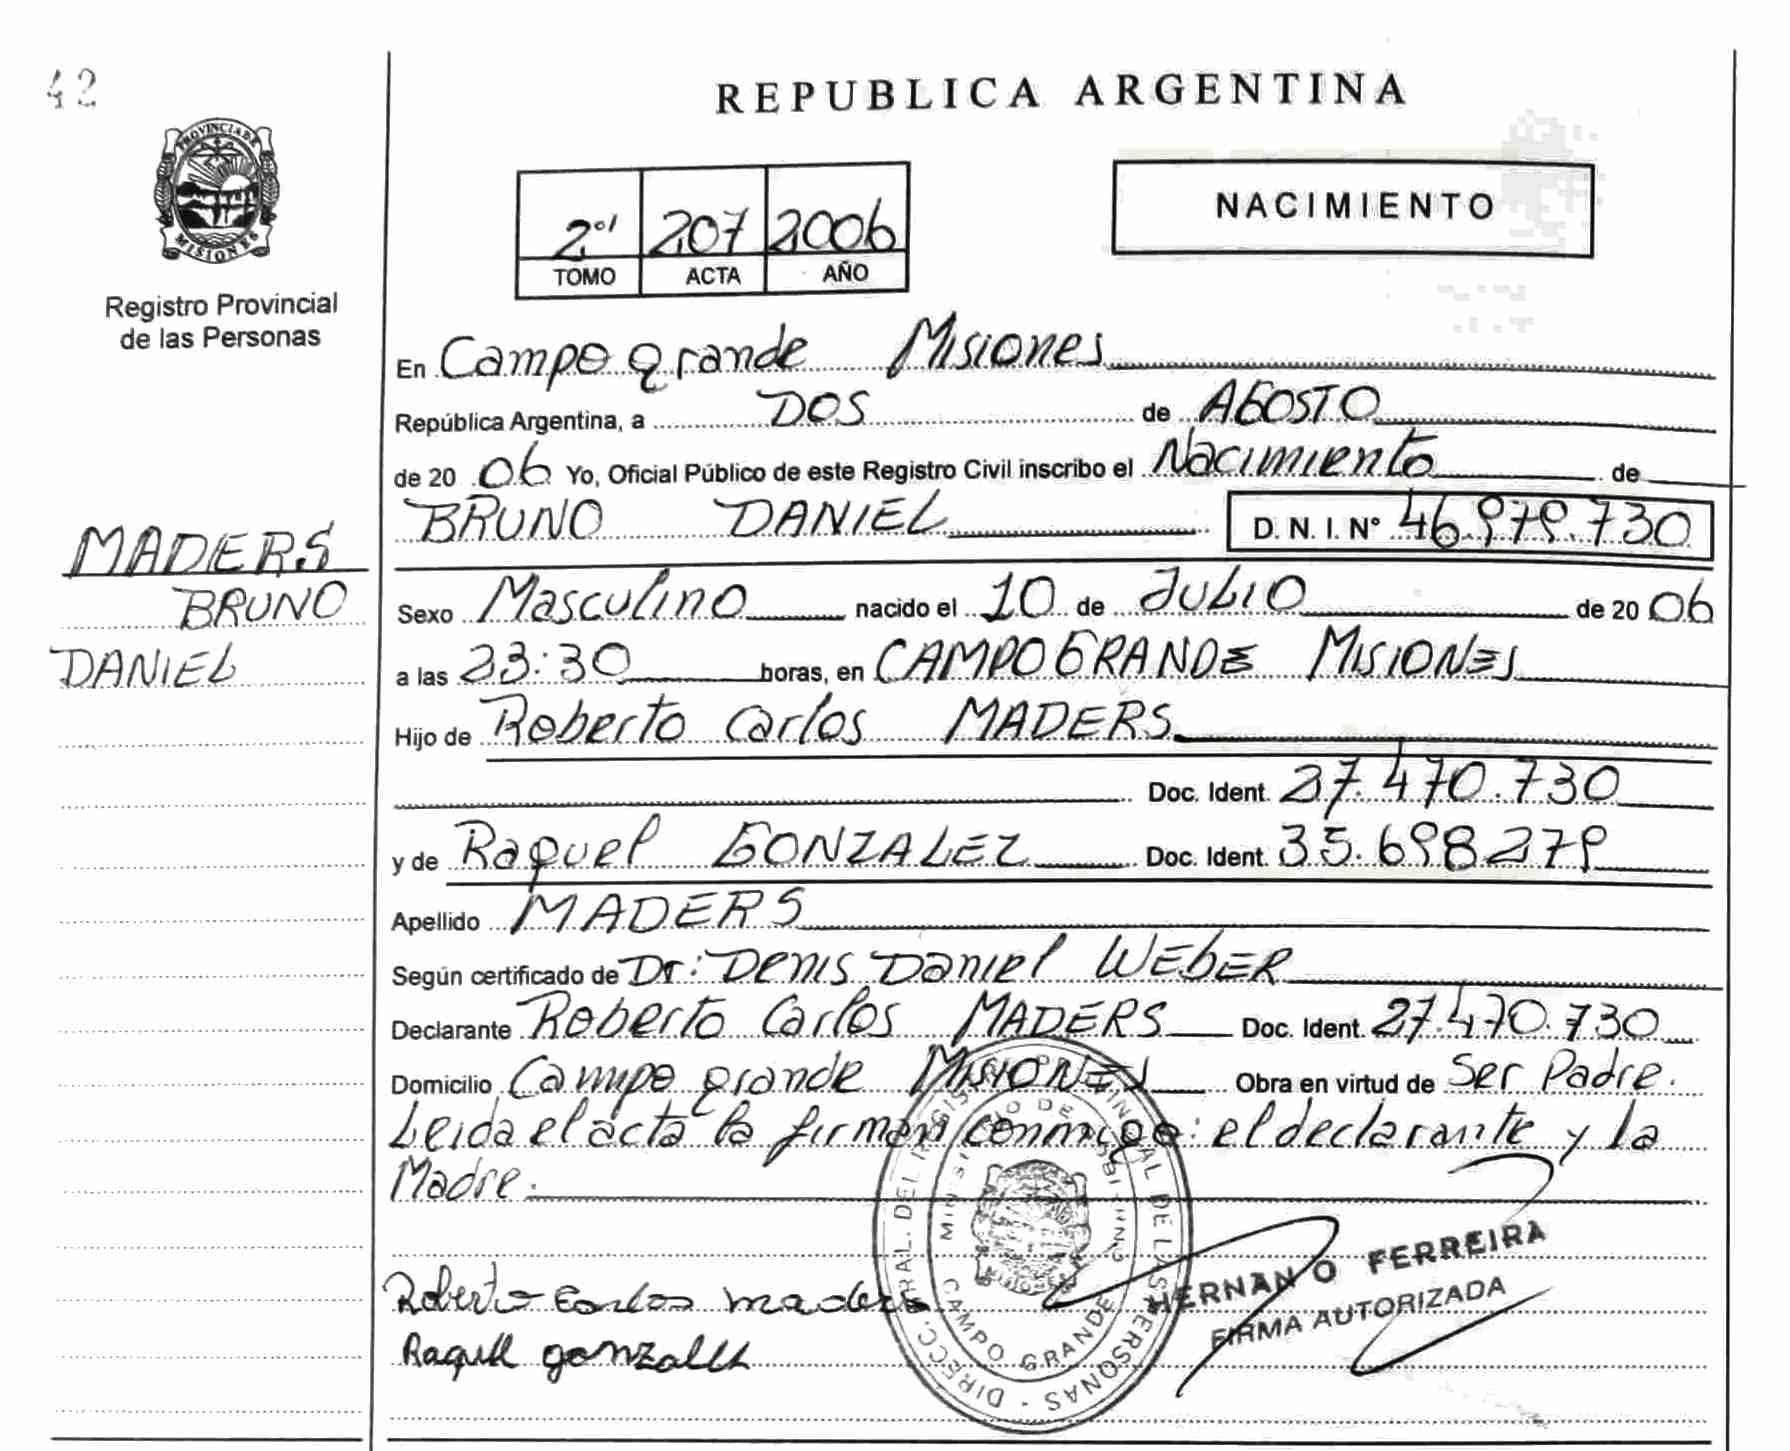 42
REPUBLICA ARGENTINA
PROVINCIA DE
MISIONES
Registro Provincial
de las Personas
2º 207 2006
TOMO ACTA AÑO
NACIMIENTO
En Campo grande Misiones
República Argentina, a DOS de AGOSTO
de 20 06 Yo, Oficial Público de este Registro Civil inscribo el Nacimiento de
BRUNO DANIEL D. N. I. Nº 46.979.730
MADERS
BRUNO
DANIEL
Sexo Masculino nacido el 10 de JULIO de 20 06
a las 23:30 horas, en CAMPO GRANDE MISIONES
Hijo de Roberto Carlos MADERS
Doc. Ident. 27.470.730
y de Raquel GONZALEZ Doc. Ident. 35.698279
Apellido MADERS
Según certificado de Dr: Denis Daniel WEBER
Declarante Roberto Carlos MADERS Doc. Ident. 27.470.730
Domicilio Campo grande MISIONES Obra en virtud de Ser Padre.
Leida el acta la firman conmigo: el declarante y la
Madre.
Roberto Carlos maders
Raquel gonzalez
CAMPO GRANDE
HERNAN O FERREIRA
FIRMA AUTORIZADA